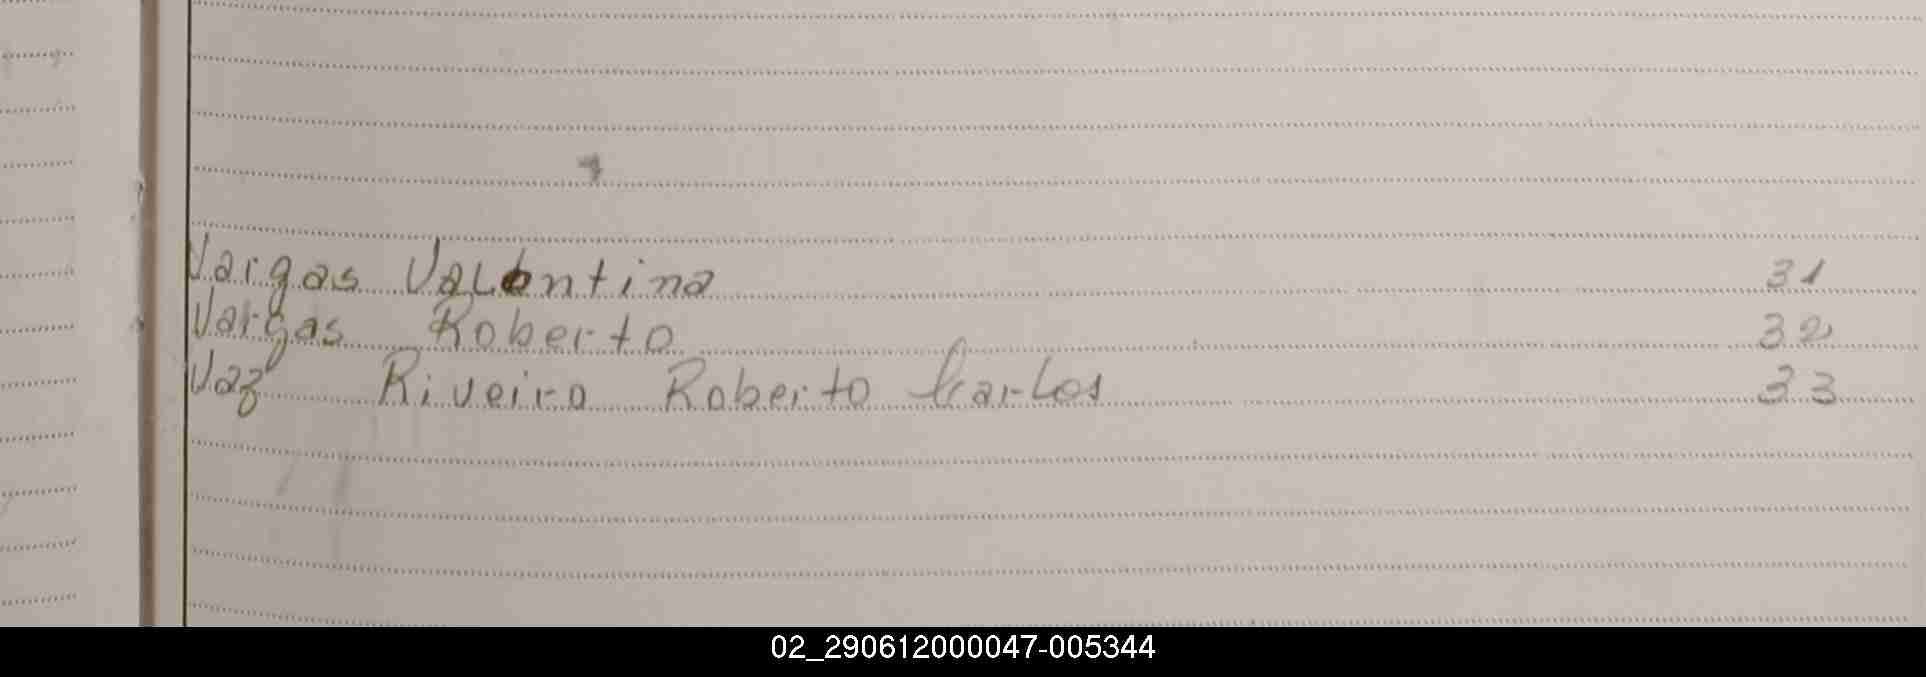 Vargas Valentina 31
Vargas Roberto 32
Vaz Riveiro Roberto Carlos 33
02_290612000047-005344